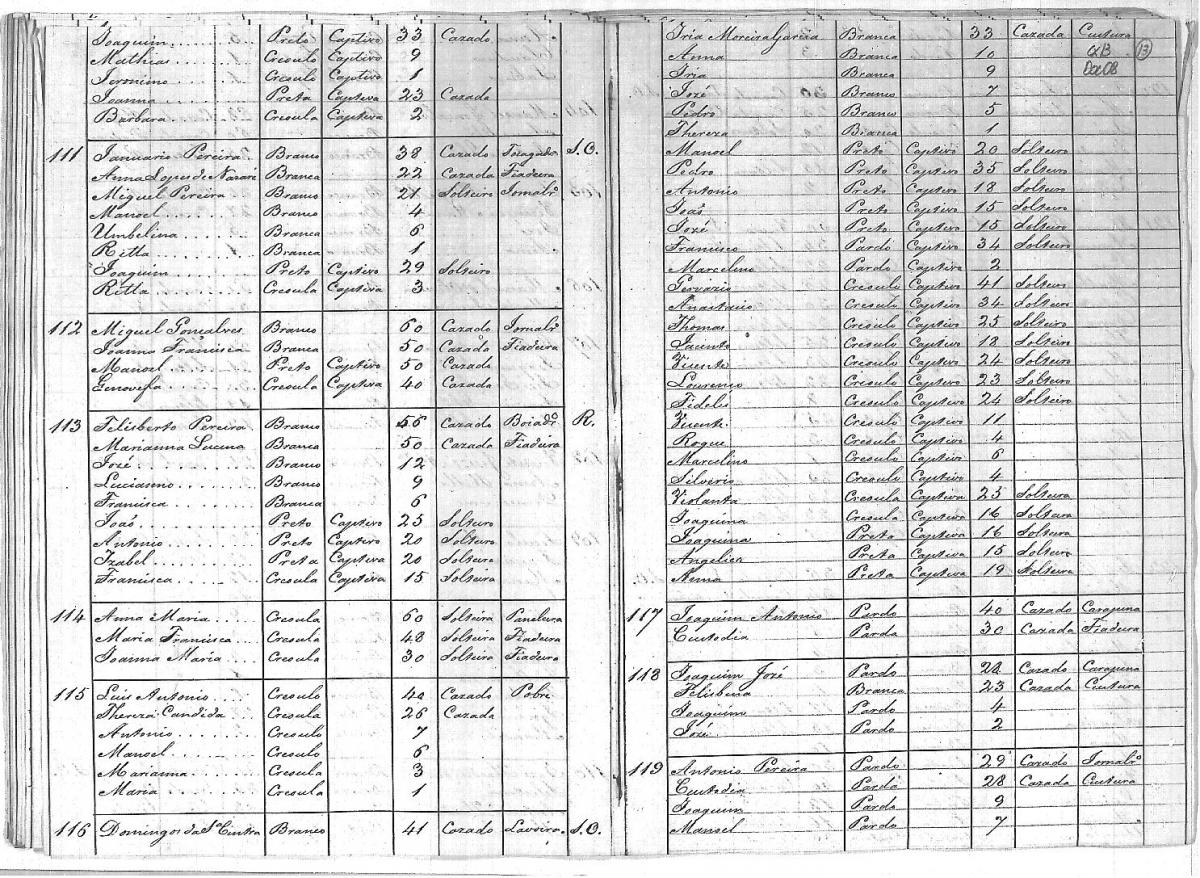 Joaquim Preto Captivo 33 Cazado
Mathias Creoulo Captivo 9
Jeronimo Creoulo Captivo 1
Joanna Preta Captiva 23 Cazada
Barbara Creoula Captiva 2
111 Januario Pereira Branco 38 Cazado S.O.
Anna Lopes de Nazaré Branca 22 Cazada Fiadeira
Miguel Pereira Branco 21 Solteiro Jornalro
Manoel Branco 4
Umbelina Branca 6
Ritta Branca 1
Joaquim Preto Captivo 29 Solteiro
Ritta Creoula Captiva 3
112 Miguel Gonçalves Branco 60 Cazado Jornalro
Joanna Francisca Branca 50 Cazada Fiadeira
Manoel Preto Captivo 50 Cazado
Genovefa Creoula Captiva 40 Cazada
113 Felisberto Pereira Branco 56 Cazado Boiadro R.
Marianna Branca 50 Cazada Fiadeira
José Branco 12
Lucianno Branco 9
Francisca Branca 6
João Preto Captivo 25 Solteiro
Antonio Preto Captivo 20 Solteiro
Izabel Preta Captiva 20 Solteira
Francisca Creoula Captiva 15 Solteira
114 Anna Maria Creoula 60 Solteira Panelera
Maria Francisca Creoula 48 Solteira Fiadeira
Joanna Maria Creoula 30 Solteira Fiadeira
115 Luis Antonio Creoulo 40 Cazado Pobre
Thereza Candida Creoula 26 Cazada
Antonio Creoulo 7
Manoel Creoulo 6
Marianna Creoula 3
Maria Creoula 1
116 Domingos da Sa Cuntra Branco 41 Cazado Lavoira S.O.
Iria Moreira Garcia Branca 33 Cazada Custura
Anna Branca 10 CxB 13
Iria Branca 9 Doc 08
José Branco 7
Pedro Branco 5
Thereza Branca 1
Manoel Preto Captivo 20 Solteiro
Pedro Preto Captivo 35 Solteiro
Antonio Preto Captivo 18 Solteiro
João Preto Captivo 15 Solteiro
José Preto Captivo 15 Solteiro
Francisco Pardo Captivo 34 Solteiro
Marcelino Pardo Captivo 2
Gervazio Creoulo Captivo 41 Solteiro
Anastacio Creoulo Captivo 34 Solteiro
Thomas Creoulo Captivo 25 Solteiro
Jacinto Creoulo Captivo 18 Solteiro
Vicente Creoulo Captivo 24 Solteiro
Lourenco Creoulo Captivo 23 Solteiro
Fidelis Creoulo Captivo 24 Solteiro
Vicente Creoulo Captivo 11
Roque Creoulo Captivo 4
Marcelino Creoulo Captivo 6
Silverio Creoulo Captivo 4
Violanta Creoula Captiva 25 Solteira
Joaquina Creoula Captiva 16 Solteira
Joaquina Preta Captiva 16 Solteira
Angelica Preta Captiva 15 Solteira
Anna Preta Captiva 19 Solteira
117 Joaquim Antonio Pardo 40 Cazado Carapina
Custodia Parda 30 Cazada Fiadeira
118 Joaquim José Pardo 28 Cazado Carapina
Felisbina Branca 23 Cazada Custura
Joaquim Pardo 4
José Pardo 2
119 Antonio Pereira Pardo 29 Cazado Jornalro
Custodia Parda 28 Cazada Custura
Joaquim Pardo 9
Manoel Pardo 7